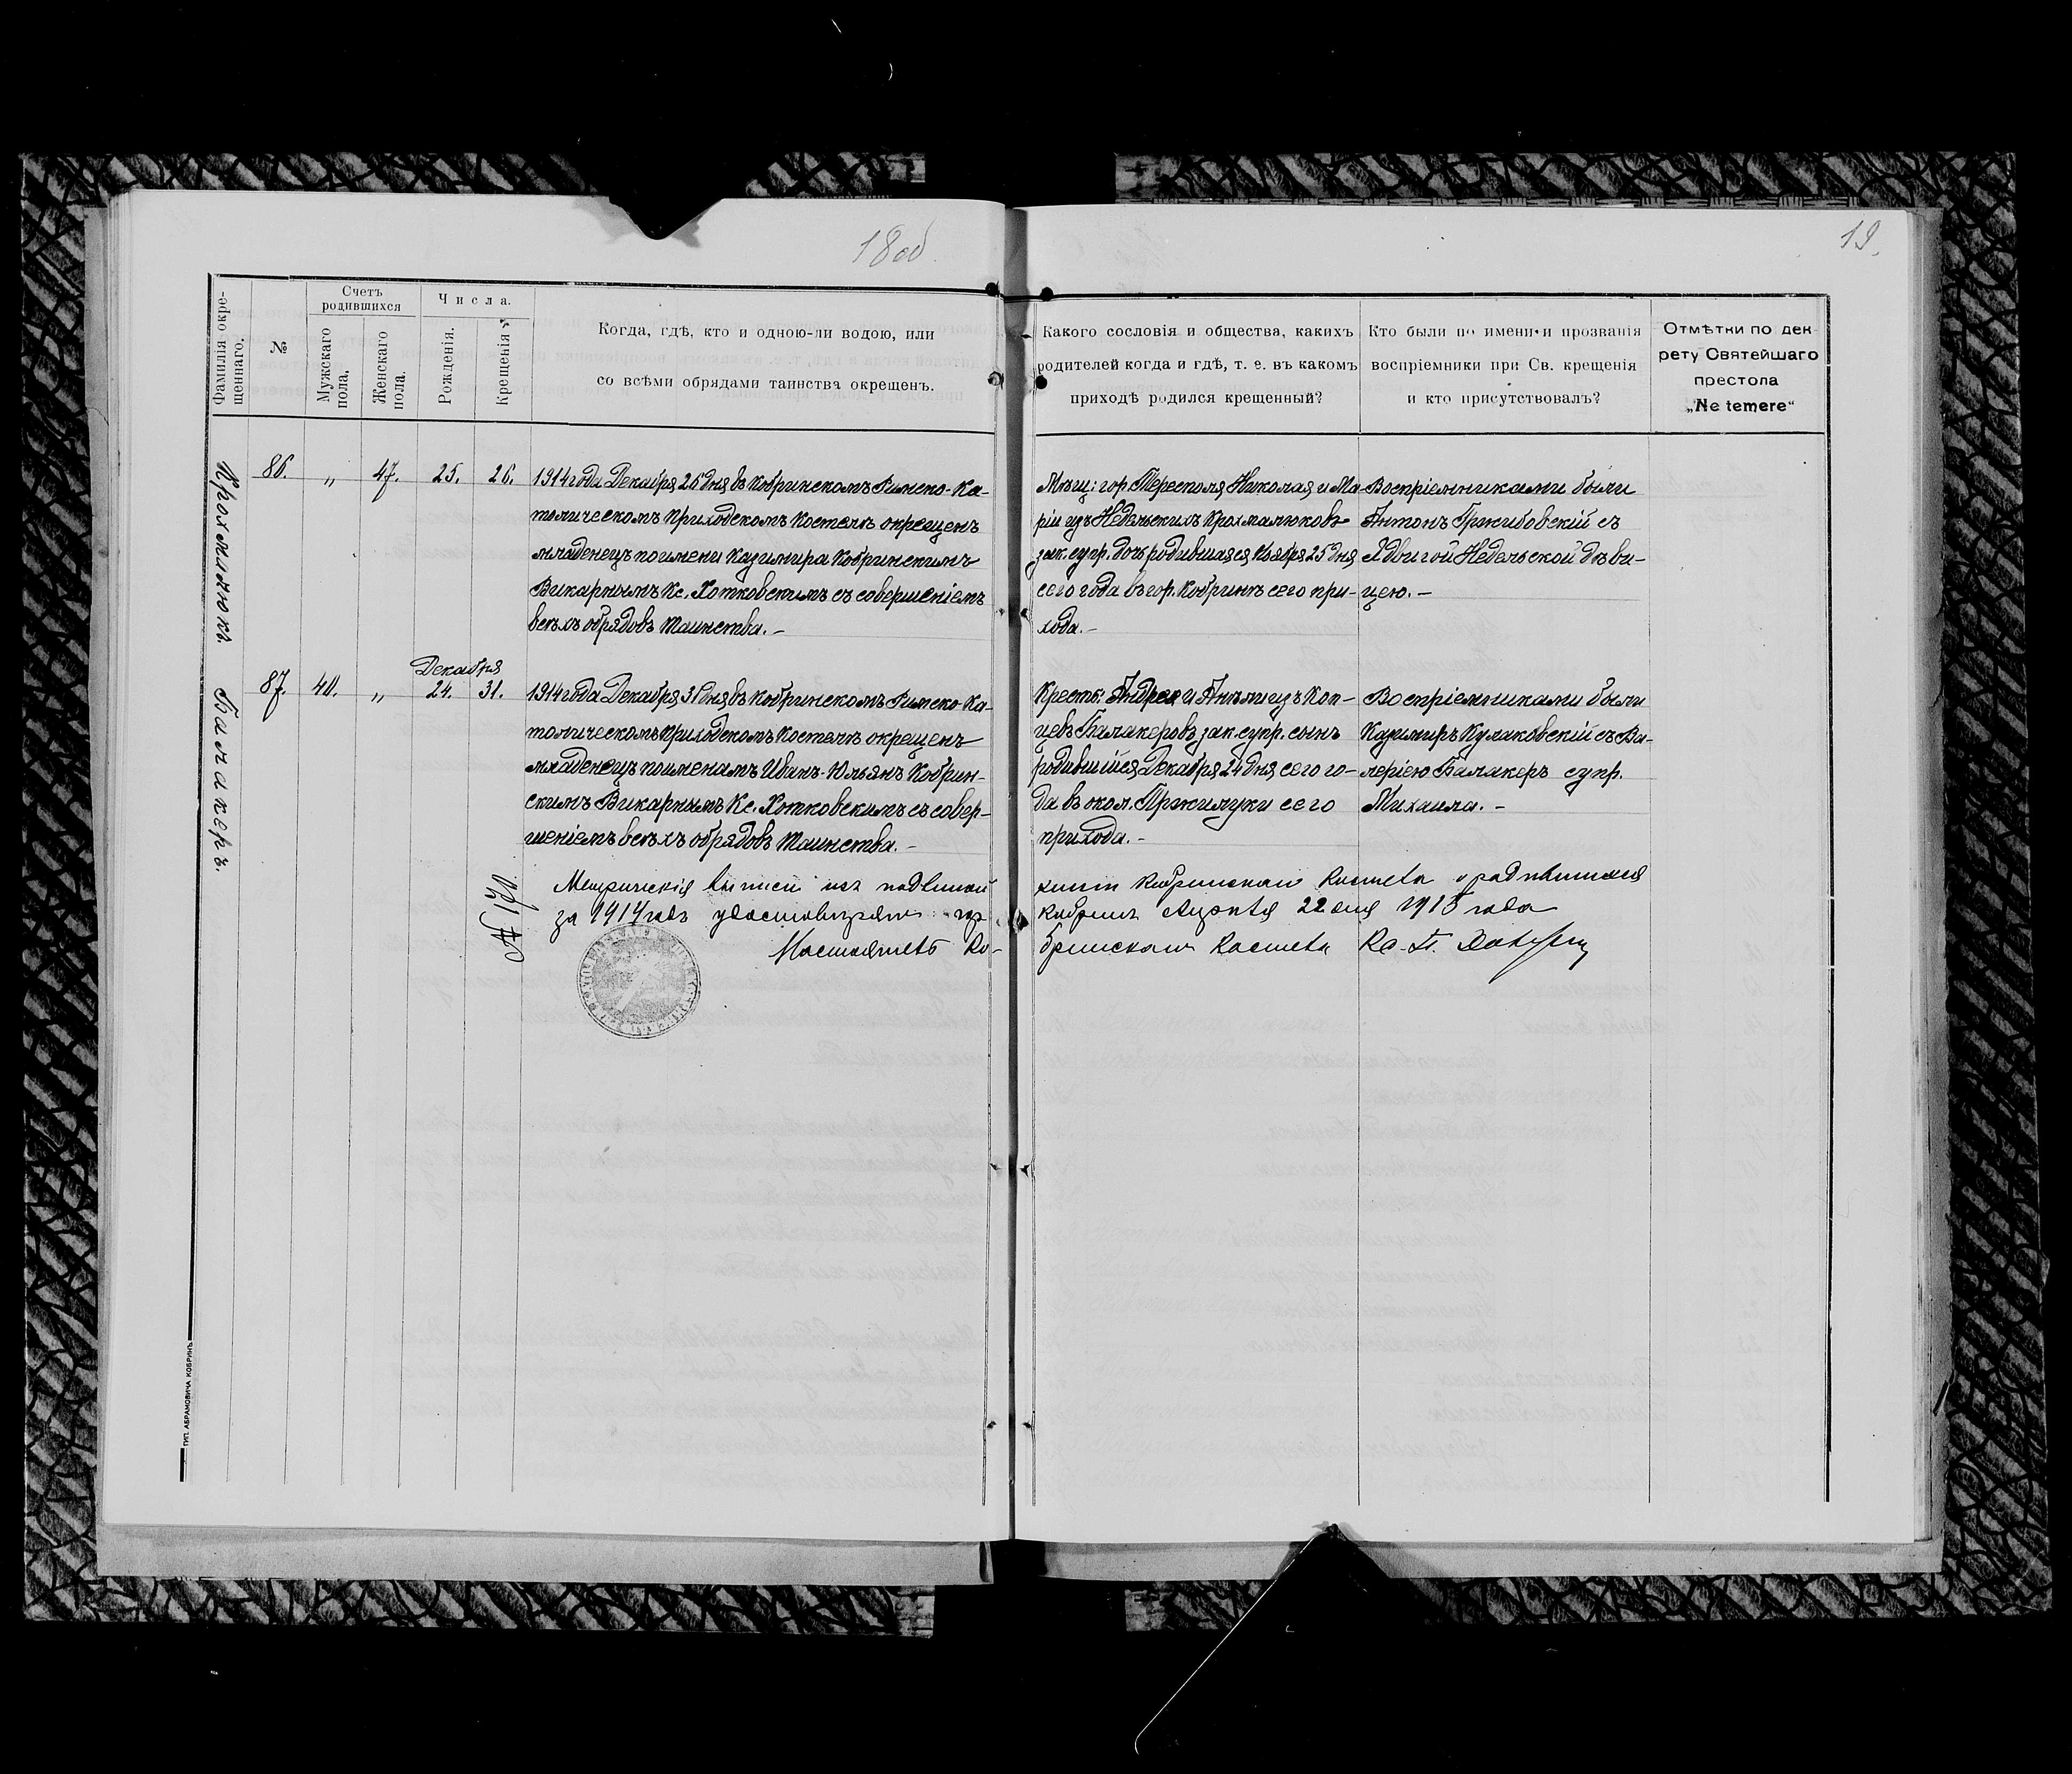 18об
19.
Фамилія окре-
щеннаго.
№
Счетъ
родившихся
Мужскаго
пола.
Женскаго
пола.
Числа.
Рожденія.
Крещенія
Когда, гдѣ, кто и одною-ли водою, или
со всѣми обрядами таинства окрещенъ.
Какого сословія и общества, какихъ
родителей когда и гдѣ, т. е. въ какомъ
приходѣ родился крещенный?
Кто были по имени и прозванія
воспріемники при Св. крещенія
и кто присутствовалъ?
Отмѣтки по дек
рету Святейшаго
престола
„Ne temere“
Крохмалюкъ.
86. „ 47. 25. 26.
1914 года Декабря 26 дня въ Кобринскомъ Римско-Ка-
толическомъ приходскомъ Костелѣ окрещенъ
младенецъ по имени Казимира Кобринскимъ
Викарнымъ Кс. Хотковскимъ съ совершеніемъ
всѣхъ обрядовъ таинства. –
Мѣщ: гор. Тересполя Николая и Ма-
ріи изъ Недельскихъ Крохмалюковъ
зак. супр. дочь родившаяся Ноября 25 дня
сего года въ гор. Кобринѣ сего при-
хода. –
Воспріемниками были
Антонъ Гржибовскій съ
Ядвигой Недельской дѣви-
цею. –
Балакеръ.
Декабря
87. 40. „ 24. 31.
1914 года Декабря 31 дня въ Кобринскомъ Римско-Ка-
толическомъ приходскомъ Костелѣ окрещенъ
младенецъ по именамъ Иванъ-Юльянъ Кобрин-
скимъ Викарнымъ Кс. Хотковскимъ съ совер-
шеніемъ всѣхъ обрядовъ таинства. –
Крест: Андрея и Анѣли изъ Коп-
цевъ Балакеровъ зак. супр. сынъ
родившійся Декабря 24 дня сего го-
да въ окол. Пржилуки сего
прихода. –
Воспріемниками были
Казимиръ Кулаковскій съ Ва-
леріею Балакеръ супр.
Михаила. –
Метрическія выписи изъ подлинной книги Кобринскаго Костела о родившихся
за 1914 годъ удостовѣряю гор Кобринъ 22 дня 1915 года
Настоятель Ко-бринскаго Костела
ТИП. АБРАМОВИЧА КОБРИНЪ